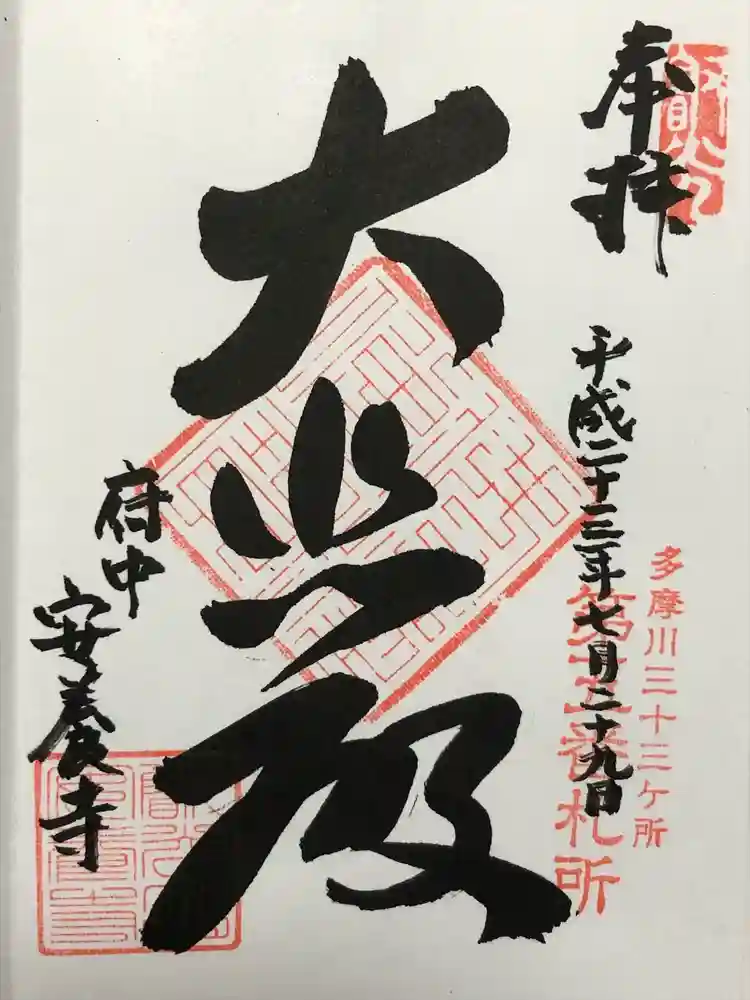 奉拝
平成二十三年七月二十九日
多摩川三十三ヶ所
第十 番札所
大悲殿
府中
安養寺